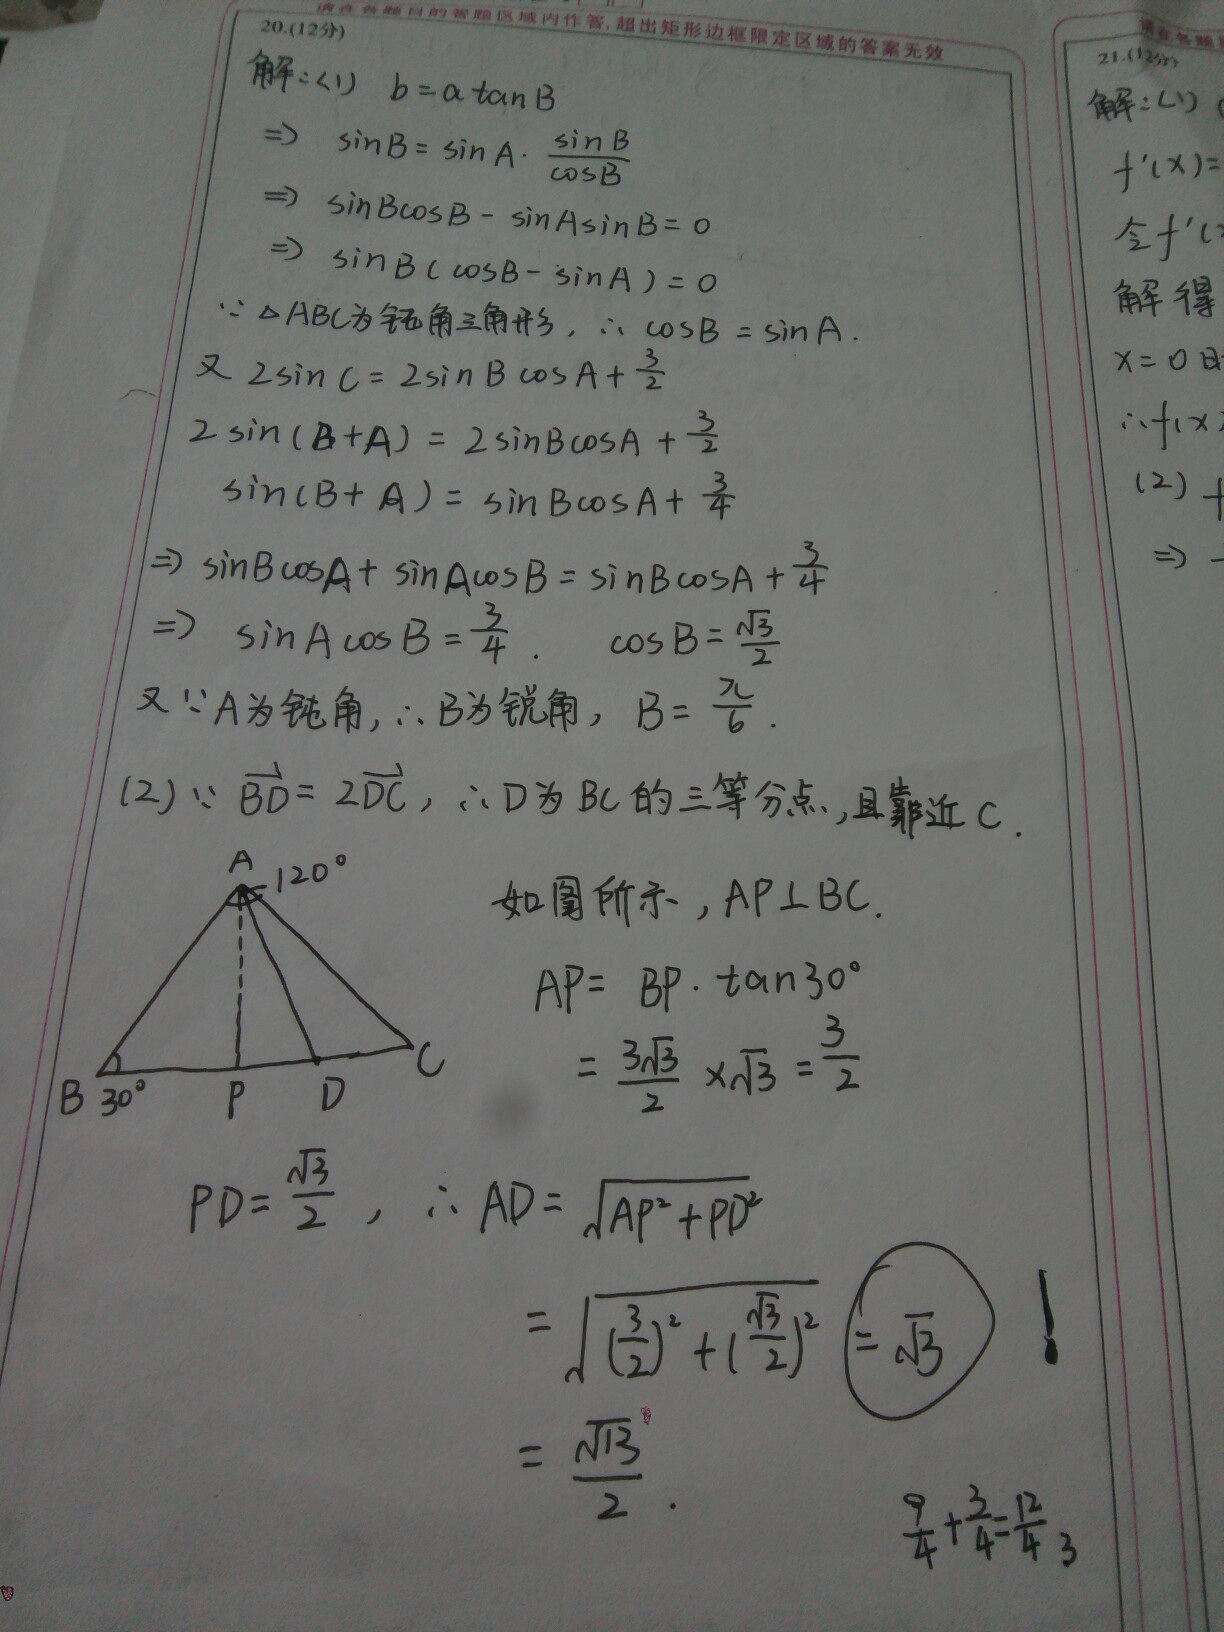 请在各题目的答题区域内作答,超出矩形边框限定区域的答案无效
20.(12分)
解:(1) b=a tanB
=> sinB=sinA·sinB/cosB
=> sinBcosB-sinAsinB=0
=> sinB(cosB-sinA)=0
∵△ABC为钝角三角形,∴cosB=sinA.
又2sinC=2sinBcosA+3/2
2sin(B+A)=2sinBcosA+3/2
sin(B+A)=sinBcosA+3/4
=> sinBcosA+sinAcosB=sinBcosA+3/4
=> sinAcosB=3/4. cosB=√3/2
又∵A为钝角,∴B为锐角,B=π/6.
(2)∵BD=2DC,∴D为BC的三等分点,且靠近C.
A 120°
B 30° P D C
如图所示,AP⊥BC.
AP=BP·tan30°
=3√3/2×√3=3/2
PD=√3/2,∴AD=√AP²+PD²
=√(3/2)²+(√3/2)² =√3 !
=√13/2.
9/4+3/4=12/4 3
21.(12分)
解:(1)
f'(x)=
令f'(
解得
x=0
∴f(x)
(2) f
=>